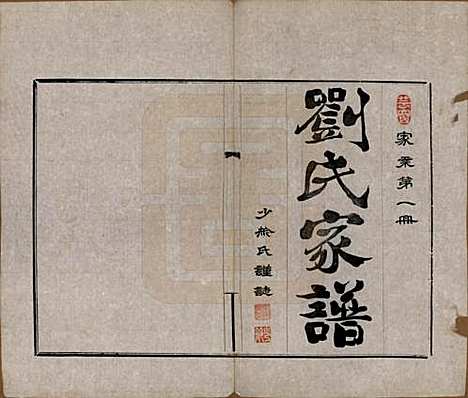 家乘第一冊
劉氏家譜
少徐氏謹誌